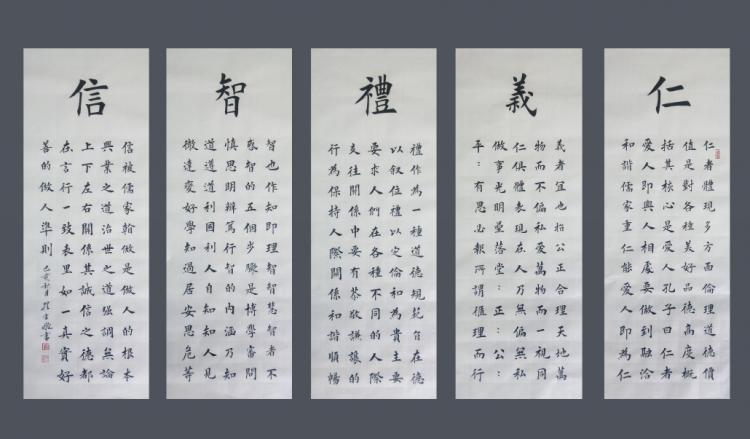 仁
仁者體現多方面倫理道德價
值是對各種美好品德高度概
括其核心是愛人孔子曰仁者
愛人即與人相處要做到融洽
和諧儒家重仁能愛人即為仁
義
義者宜也指公正合理天地萬
物而不偏私愛萬物而一視同
仁俱體表現在人乃無偏無私
做事光明磊落堂：正：公：
平：有恩必報所謂權理而行
禮
禮作為一種道德規範旨在德
以叙位禮以定倫和為貴主要
要求人們在各種不同的人際
交往關係中要有恭敬謙讓的
行為保持人際關係和諧順暢
智
智也作知即理智智慧智者不
惑智的五個步驟是博學審問
慎思明辨篤行智的内涵乃知
道道道利国利人自知知人見
微達變好學知過居安思危等
信
信被儒家做是做人的根本
興業之道治世之道强調無論
上下左右關係其誠信之德都
在言行一致表里如一真實好
善的做人準則
己亥秋月書